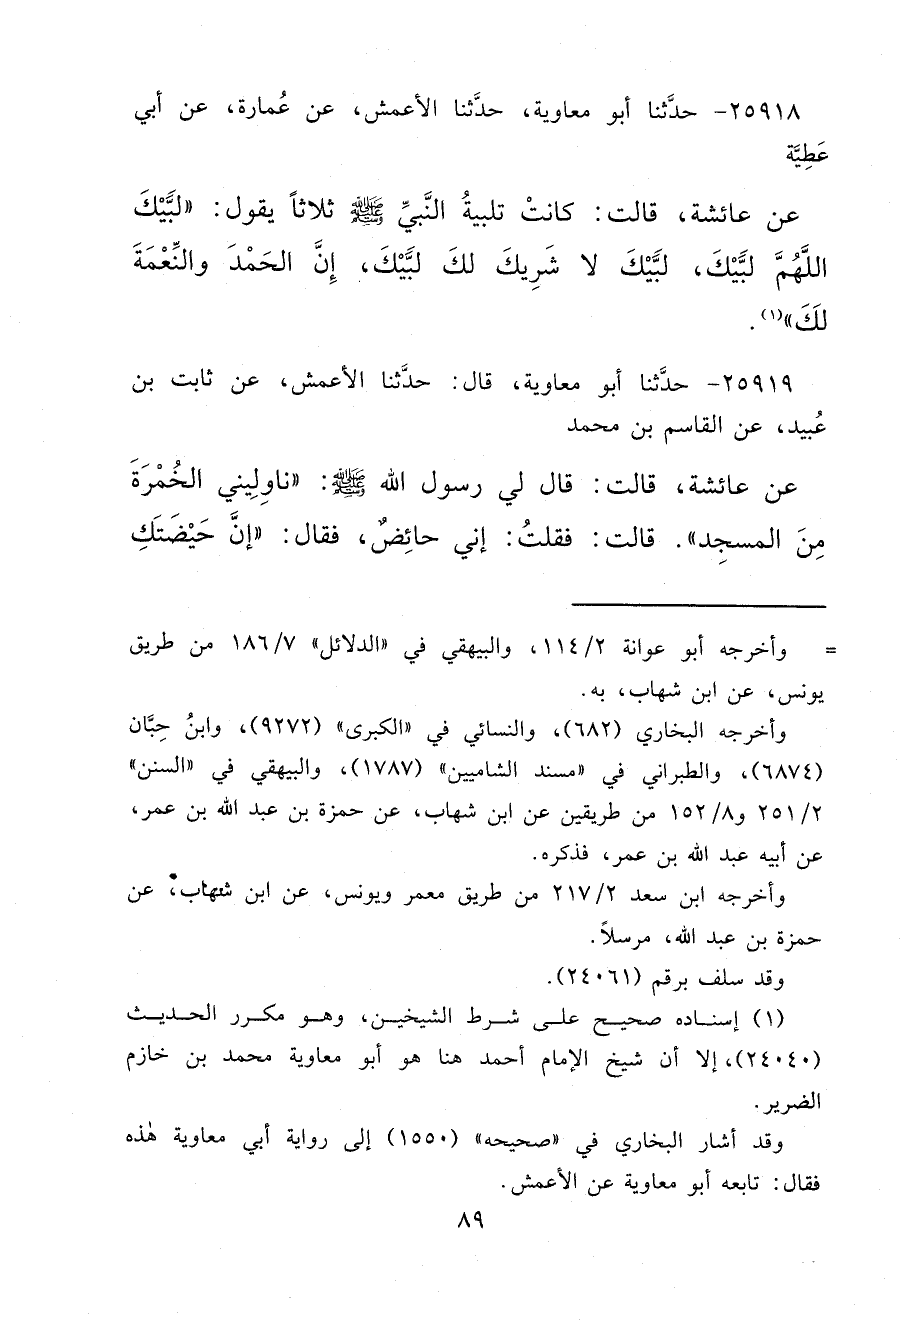 ٢٥٩١٨- حدَّثنا أبو معاوية، حدَّثنا الأعمش، عن عُمارة، عن أبي
عَطِيَّة
عن عائشة، قالت: كانتْ تلبيةُ النَّبيِّ ﷺ ثلاثاً يقول: «لبَّيْكَ
اللَّهُمَّ لبَّيْكَ، لبَّيْكَ لا شَرِيكَ لكَ لبَّيْكَ، إِنَّ الحَمْدَ والنِّعْمَةَ
لكَ»(١).
٢٥٩١٩- حدَّثنا أبو معاوية، قال: حدَّثنا الأعمش، عن ثابت بن
عُبيد، عن القاسم بن محمد
عن عائشة، قالت: قال لي رسول الله ﷺ: «ناوِليني الخُمْرَةَ
مِنَ المسجِد». قالت: فقلتُ: إني حائِضٌ، فقال: «إنَّ حَيْضَتَكِ
= وأخرجه أبو عوانة ١١٤/٢، والبيهقي في «الدلائل» ١٨٦/٧ من طريق
يونس، عن ابن شهاب، به.
وأخرجه البخاري (٦٨٢)، والنسائي في «الكبرى» (٩٢٧٢)، وابنُ حِبَّان
(٦٨٧٤)، والطبراني في «مسند الشاميين» (١٧٨٧)، والبيهقي في «السنن»
٢٥١/٢ و١٥٢/٨ من طريقين عن ابن شهاب، عن حمزة بن عبد الله بن عمر،
عن أبيه عبد الله بن عمر، فذكره.
وأخرجه ابن سعد ٢١٧/٢ من طريق معمر ويونس، عن ابن شهاب، عن
حمزة بن عبد الله، مرسلاً.
وقد سلف برقم (٢٤٠٦١).
(١) إسناده صحيح على شرط الشيخين، وهو مكرر الحديث
(٢٤٠٤٠)، إلا أن شيخ الإمام أحمد هنا هو أبو معاوية محمد بن خازم
الضرير.
وقد أشار البخاري في «صحيحه» (١٥٥٠) إلى رواية أبي معاوية هٰذه
فقال: تابعه أبو معاوية عن الأعمش.
٨٩